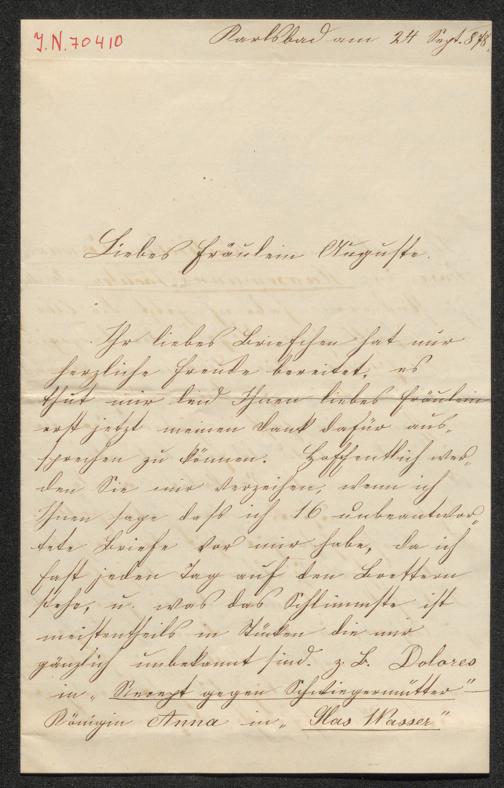 J.N. 70410
Karlsbad am 24 Sept. 878.
Liebes Fräulein Auguste.
Ihr liebes Briefchen hat mir
herzliche Freude bereitet, es
thut mir leid Ihnen liebes Fräulein
erst jetzt meinen Dank dafür aus-
sprechen zu können. Hoffentlich wer-
den Sie mir verzeihen, wenn ich
Ihnen sage daß ich 16 unbeantwor-
tete Briefe vor mir habe, da ich
fast jeden Tag auf den Brettern
stehe, u. was das Schlimmste ist
meistentheils in Stücken die mir
gänzlich unbekannt sind. z. B. Dolores
in „Recept gegen Schwiegermütter“ –
Königin Anna in „Glas Wasser“